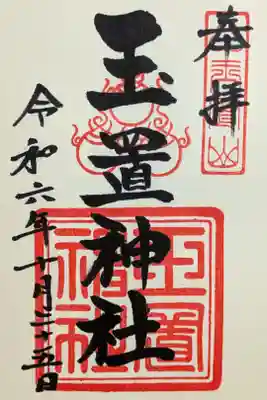 奉拝
玉置山
玉置神社
玉置神社
令和六年十月二十五日